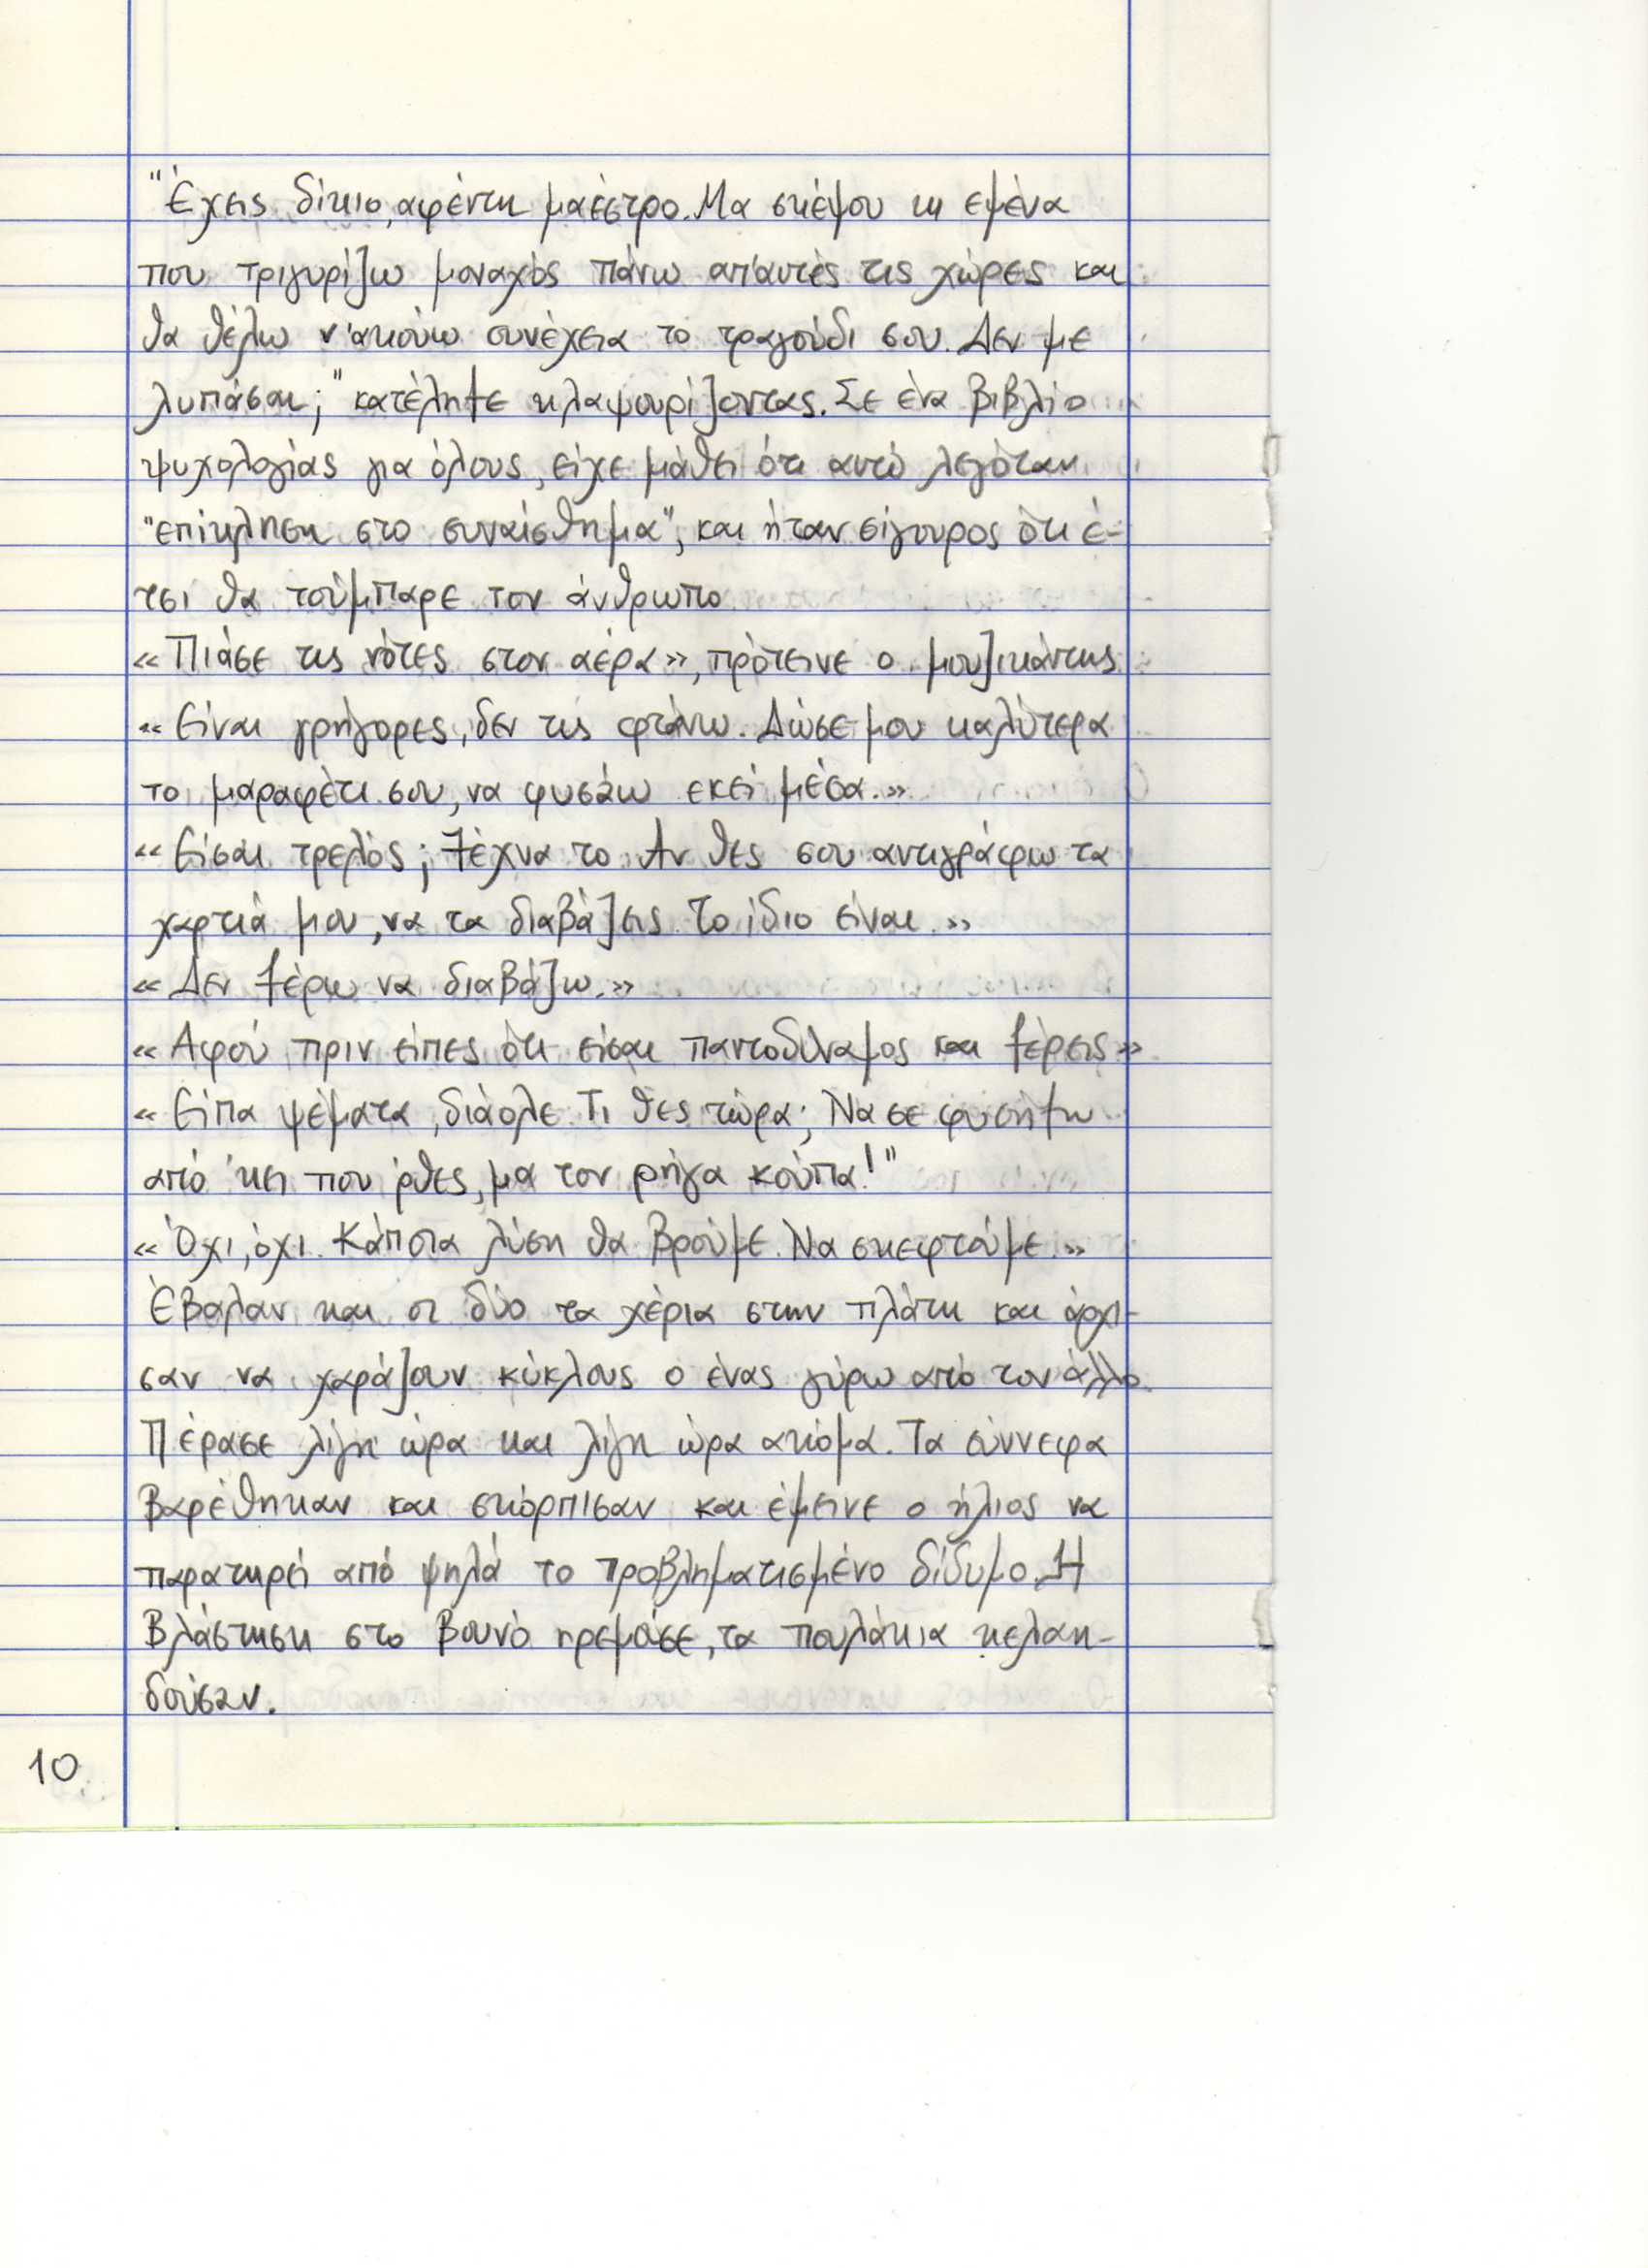 "Έχεις δίκιο, αφέντη μαέστρο. Μα σκέψου κι εμένα
που τριγυρίζω μοναχός πάνω απ' αυτές τις χώρες και
θα θέλω ν' ακούω συνέχεια το τραγούδι σου. Δεν με
λυπάσαι;" κατέληξε κλαψουρίζοντας. Σε ένα βιβλίο
ψυχολογίας για όλους, είχε μάθει ότι αυτό λεγόταν
"επίκληση στο συναίσθημα", και ήταν σίγουρος ότι έ-
τσι θα τούμπαρε τον άνθρωπο.
«Πιάσε τις νότες στον αέρα», πρότεινε ο μουζικάντης.
«Είναι γρήγορες, δεν τις φτάνω. Δώσε μου καλύτερα
το μαραφέτι σου, να φυσάω εκεί μέσα.»
«Είσαι τρελός; Ξέχνα το. Αν θες σου αντιγράφω τα
χαρτιά μου, να τα διαβάζεις. Το ίδιο είναι.»
«Δεν ξέρω να διαβάζω.»
«Αφού πριν είπες ότι είσαι παντοδύναμος και ξέρεις»
«Είπα ψέματα, διάολε. Τι θες τώρα; Να σε φυσήξω
από 'κει που 'ρθες, μα τον ρήγα κούπα!"
«Όχι, όχι. Κάποια λύση θα βρούμε. Να σκεφτούμε.»
Έβαλαν και οι δύο τα χέρια στην πλάτη και άρχι-
σαν να χαράζουν κύκλους ο ένας γύρω από τον άλλο.
Πέρασε λίγη ώρα και λίγη ώρα ακόμα. Τα σύννεφα
βαρέθηκαν και σκόρπισαν και έμεινε ο ήλιος να
παρατηρεί από ψηλά το προβληματισμένο δίδυμο. Η
βλάστηση στο βουνό ηρεμούσε, τα πουλάκια κελαη-
δούσαν.
10